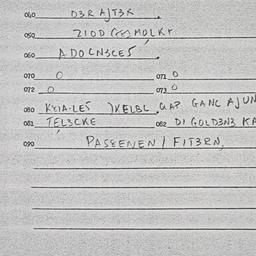 040 D3R AJT3R
050 2IOD GESMOLKT
060 ADOLNSCES
070 0 071 0
072 0 073 0
080 KEIA-LES )KELBL GAP GANC AJUN
081 TELSCKE 082 DI GOLD3N3 KA
090 PASEENEN / FIT3RN,